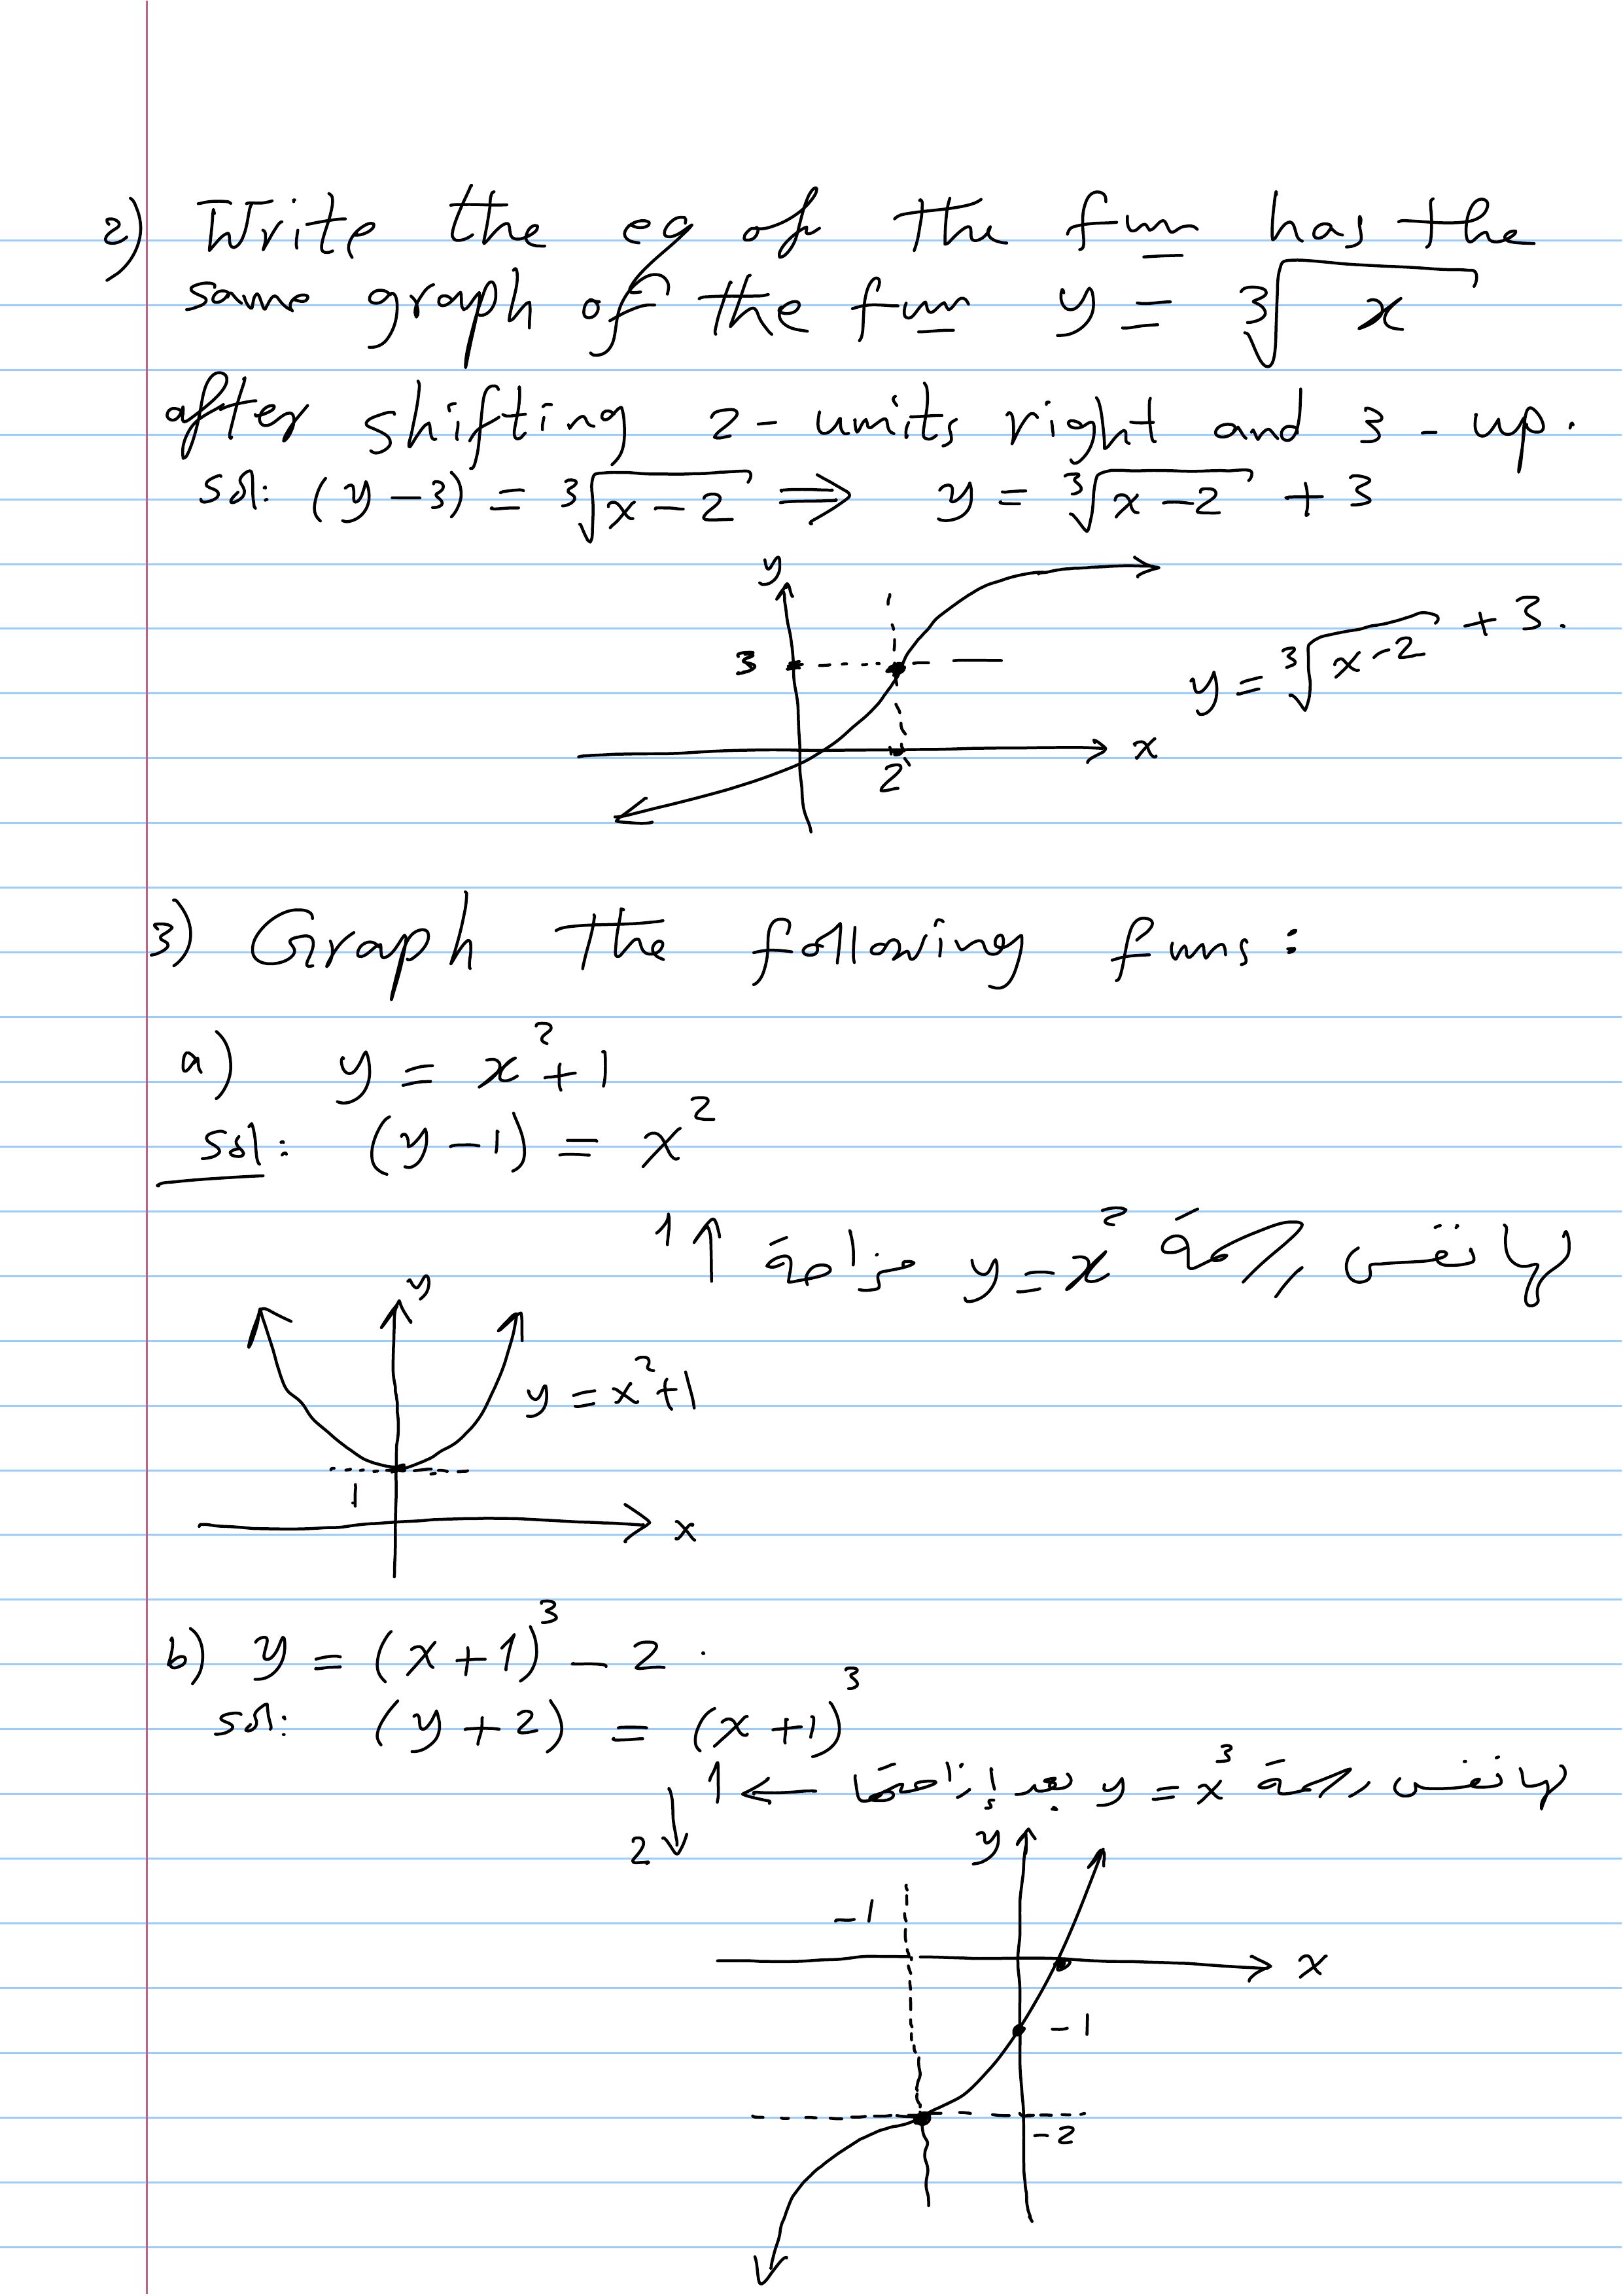 2) Write the eq of the fun has the
same graph of the fun y = ∛x
after shifting 2-units right and 3-up.
sol: (y-3) = ∛(x-2) ⟹ y = ∛(x-2) + 3
y
3
y = ∛(x-2) + 3.
x
2
3) Graph the following funs:
a) y = x² + 1
sol: (y-1) = x²
لها نفس رسمة y = x² مزاحة ↑ 1
y
y = x² + 1
1
x
b) y = (x+1)³ - 2.
sol: (y+2) = (x+1)³
لها نفس رسمة y = x³ بعد إزاحتها ← 1
2 ↓
y
-1
x
-1
-2